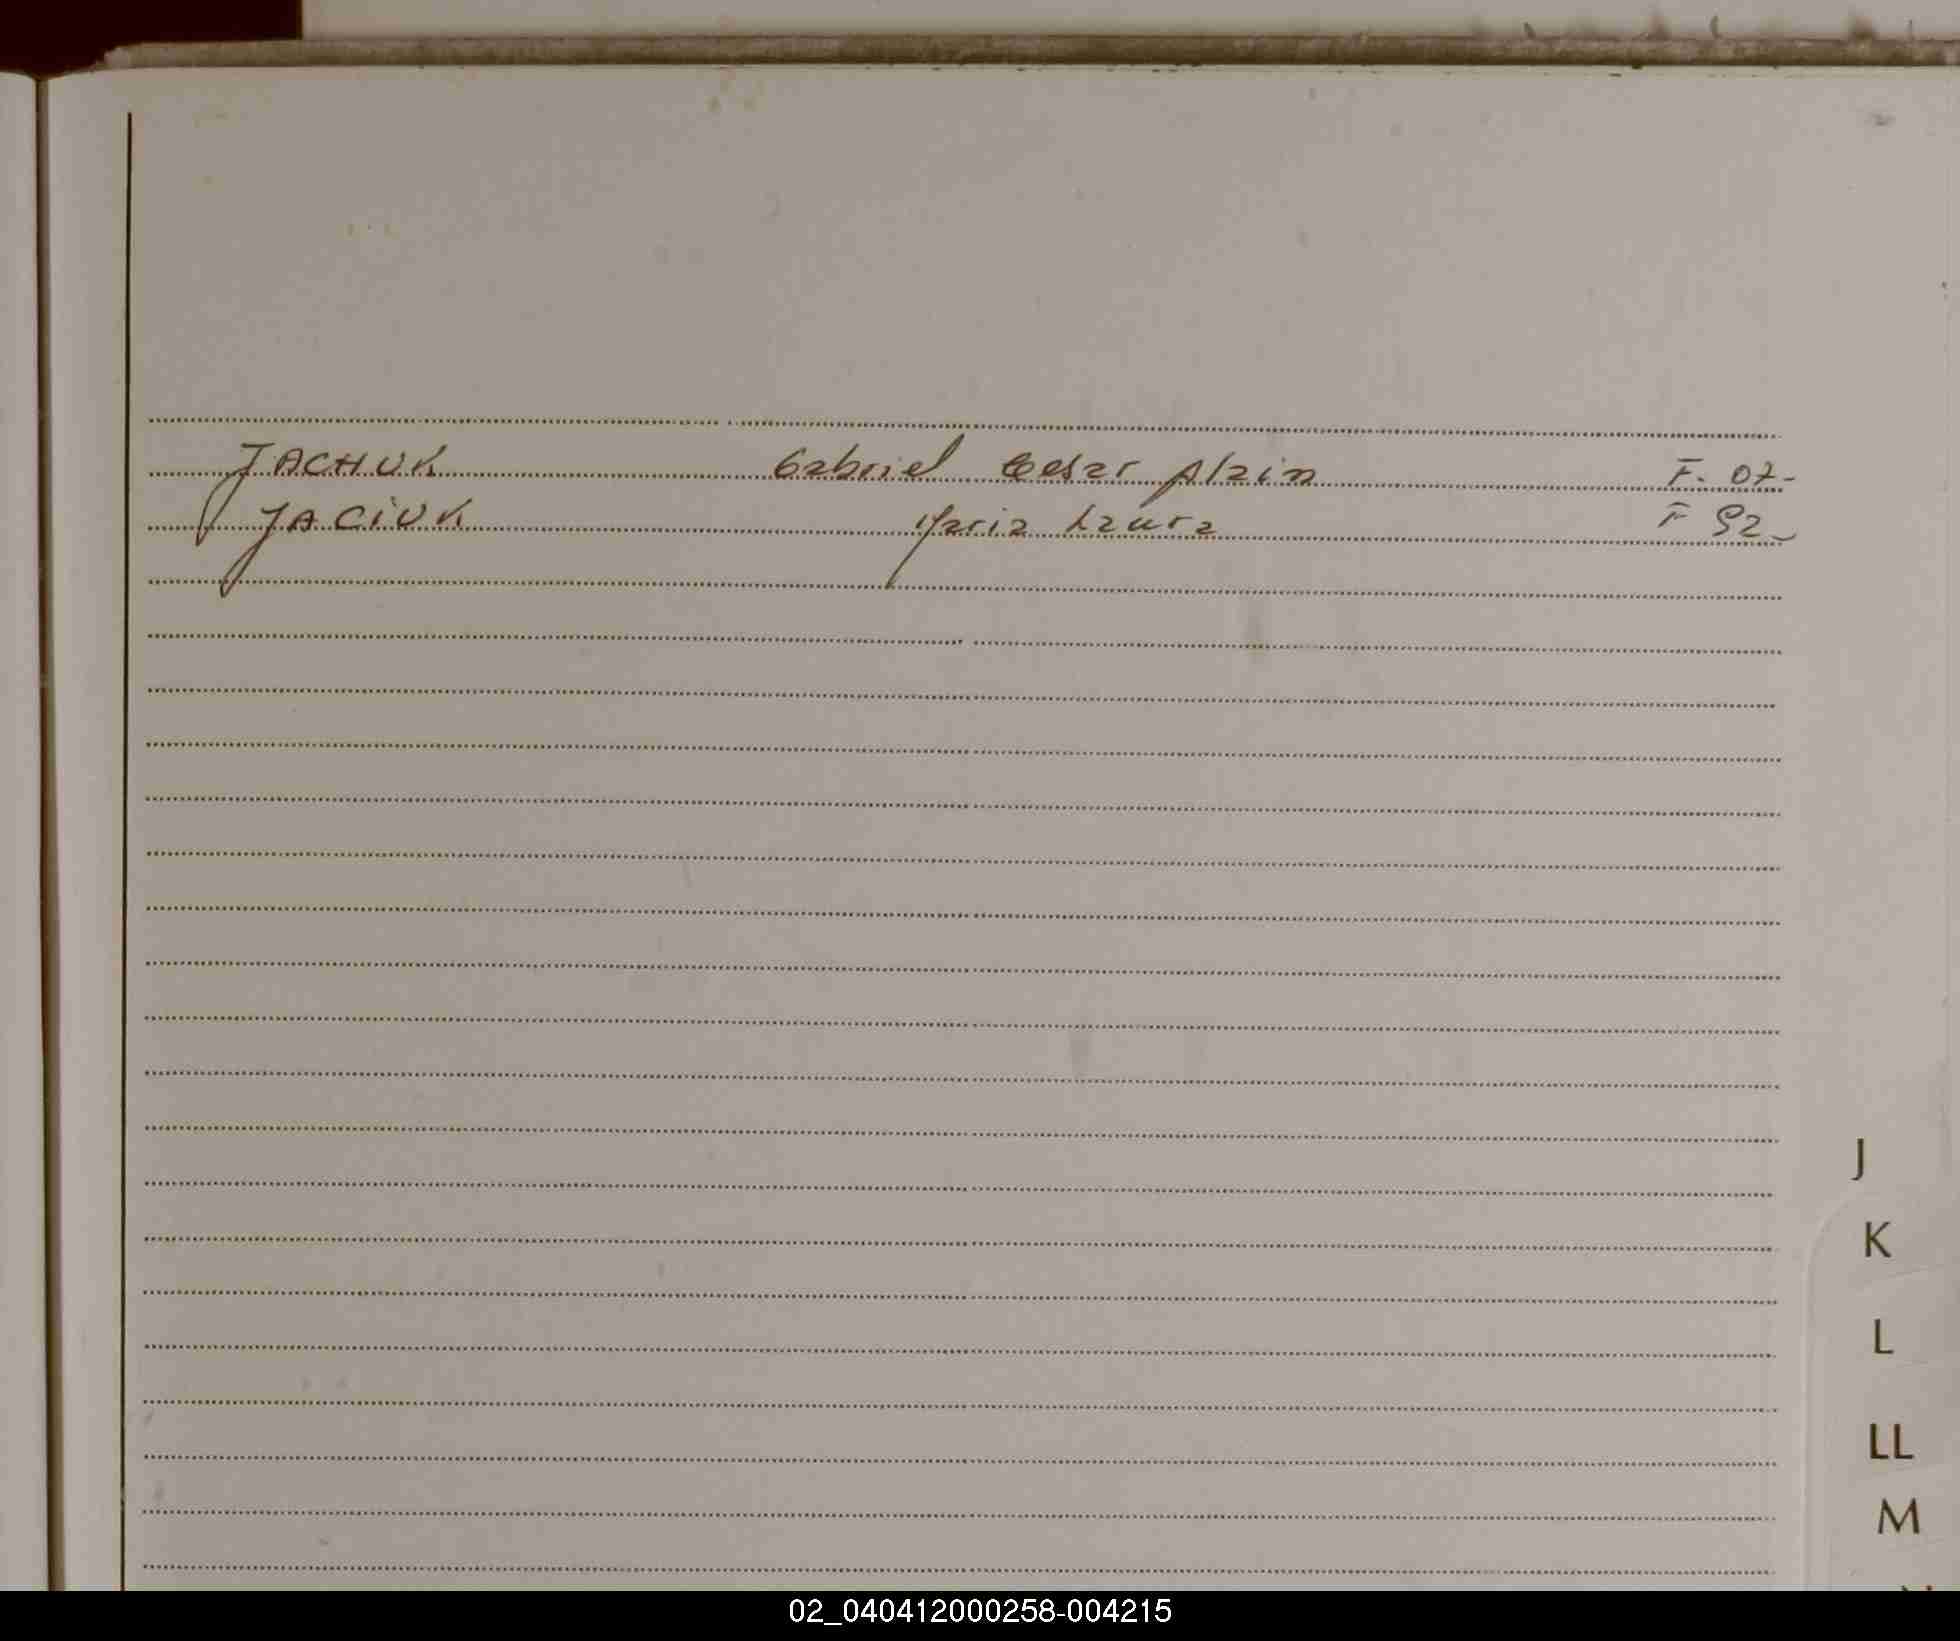 JACHUK Gabriel Cesar Alain F. 07-
JACIUK Maria Laura F 92-
J
K
L
LL
M
02_040412000258-004215